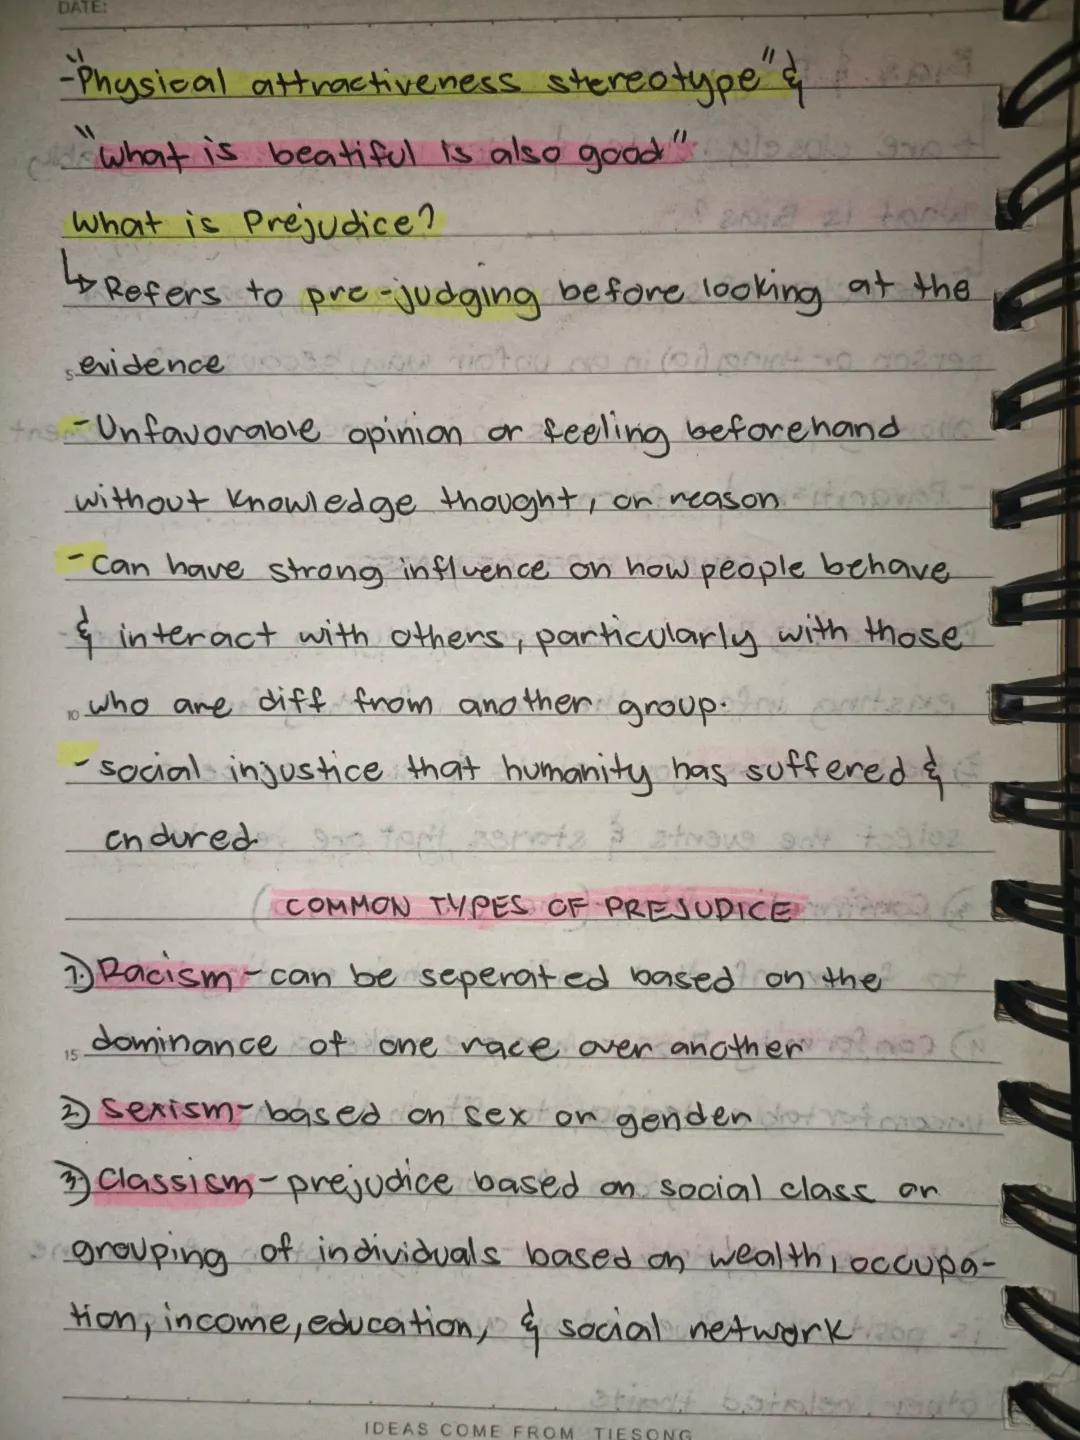 DATE:
-"Physical attractiveness stereotype" &
"What is beatiful is also good"
What is Prejudice?
↳ Refers to pre-judging before looking at the
5 evidence
- Unfavorable opinion or feeling beforehand
without knowledge thought, or reason
- can have strong influence on how people behave
& interact with others, particularly with those
10 who are diff from another group.
- social injustice that humanity has suffered &
endured
COMMON TYPES OF PREJUDICE
1) Racism - can be seperated based on the
15 dominance of one race over another
2) Sexism - based on sex or gender
3) Classism - prejudice based on social class or
grouping of individuals based on wealth, occupa-
tion, income, education, & social network
IDEAS COME FROM TIESONG